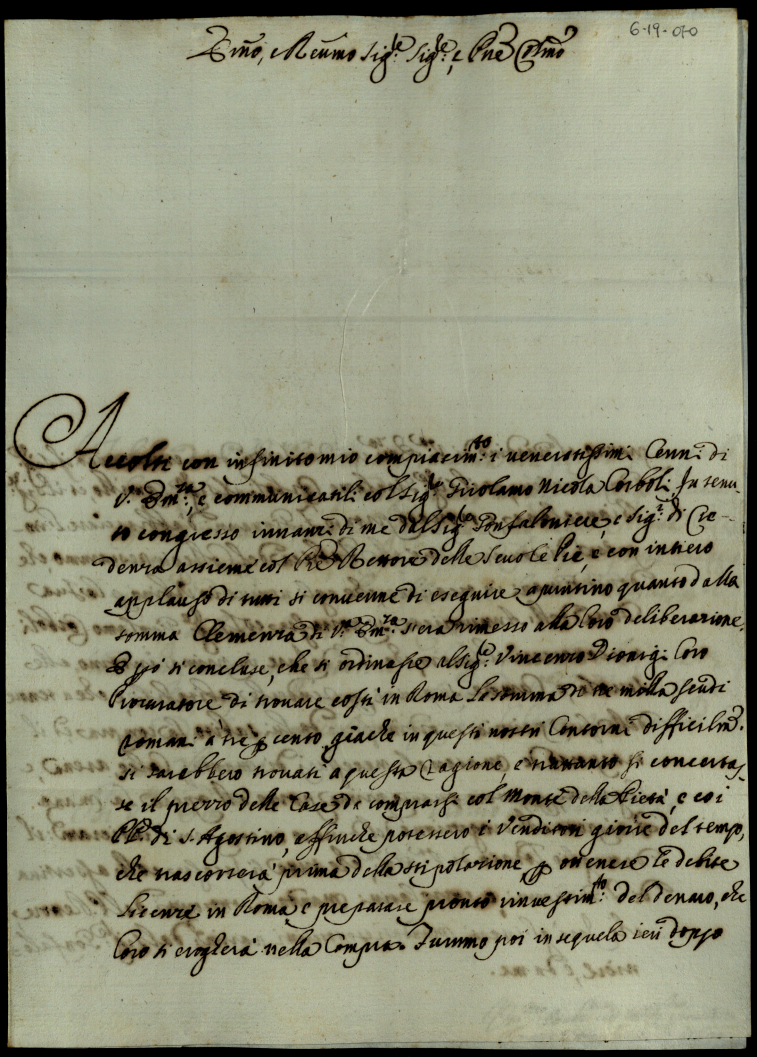 6-19-070
Emo, e Reumo Sig.re Sig.re, e Pne Colmo
Accolti con infinito mio compiacim.to i veneratissimi Cenni di
V.a Em.za, e communicatili col Sig.r Girolamo Nicola Corboli. In tenu-
to congresso innanzi di me dal Sig.r Gonfaloniere, e Sig.ri di Cre-
denza assieme col Rettore delle Scuole Pie, e con intiero
applauso di tutti si convenne di eseguire apuntino quanto dalla
somma Clemenza di V.a Em.za s'era rimesso alla loro deliberazione.
E p ciò si concluse, che si ordinasse al Sig.r Vincenzo Dionigi loro
Procuratore di trovare costì in Roma la somma di tre milla scudi
romani à trè p cento, giache in questi nostri Contorni difficilm.e
si sarebbero trovati a questa ragione, e trattanto si concertas-
se il prezzo delle Case da comprarsi col Monte della Pietà, e coi
PP. di S. Agostino, affinche potessero i Venditori gioire del tempo,
che trascorrerà prima della stipolazione, p ottenere le debite
Licenze in Roma, e preparare pronto rinvestim.to del denaro, che
loro si erogherà nella Compra. Fummo poi in sequela ieri doppo